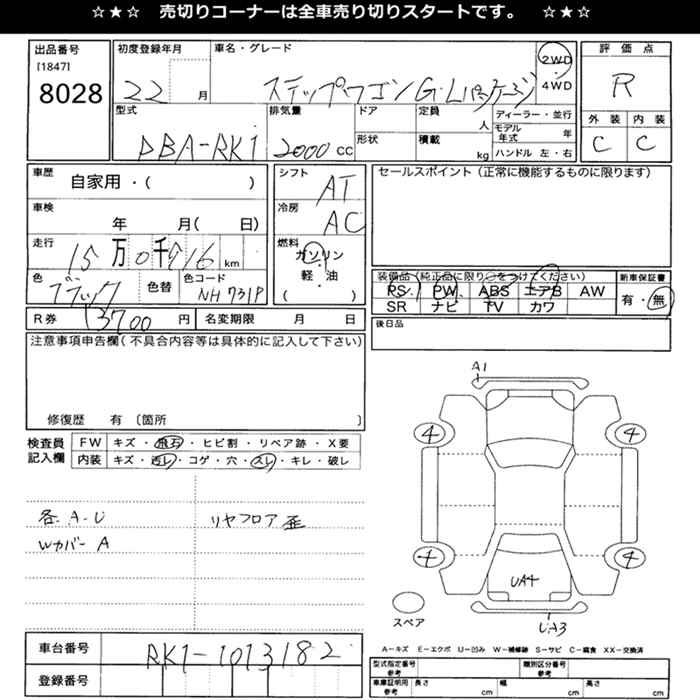 ☆★☆ 売切りコーナーは全車売り切りスタートです。 ☆★☆
出品番号
[1847]
8028
初度登録年月
22 月
車名・グレード
ステップワゴン G・Lパッケージ
2WD
・
4WD
評価点
R
外装 内装
C C
型式
DBA-RK1
排気量
2000 CC
ドア
形状
定員
人
積載
kg
ディーラー・並行
モデル年式 年
ハンドル 左・右
車歴
自家用・( )
シフト
AT
セールスポイント(正常に機能するものに限ります)
車検
年 月( 日)
冷房
AC
走行
15万0千716km
燃料
ガソリン
・
軽・油
( )
色
ブラック
色替
色コード
NH731P
装備品(純正品に限り○をつけてください)
PS PW ABS エアB AW
SR ナビ TV カワ
新車保証書
有・無
R券 13700 円
名変期限 月 日
後日品
注意事項申告欄(不具合内容等は具体的に記入して下さい)
修復歴 有 〔箇所 〕
検査員記入欄
FW キズ・飛石・ヒビ割・リペア跡・X要
内装 キズ・汚レ・コゲ・穴・スレ・キレ・破レ
各 A-U
Wカバー A
リヤフロア 歪
A1
4 4
4 4
UA4
スペア
UA3
A-キズ E-エクボ U-凹み W-補修跡 S-サビ C-腐食 XX-交換済
車台番号 RK1-1013182
登録番号
型式指定番号 参考
類別区分番号 参考
車庫証明用 参考
長さ cm
幅 cm
高さ cm